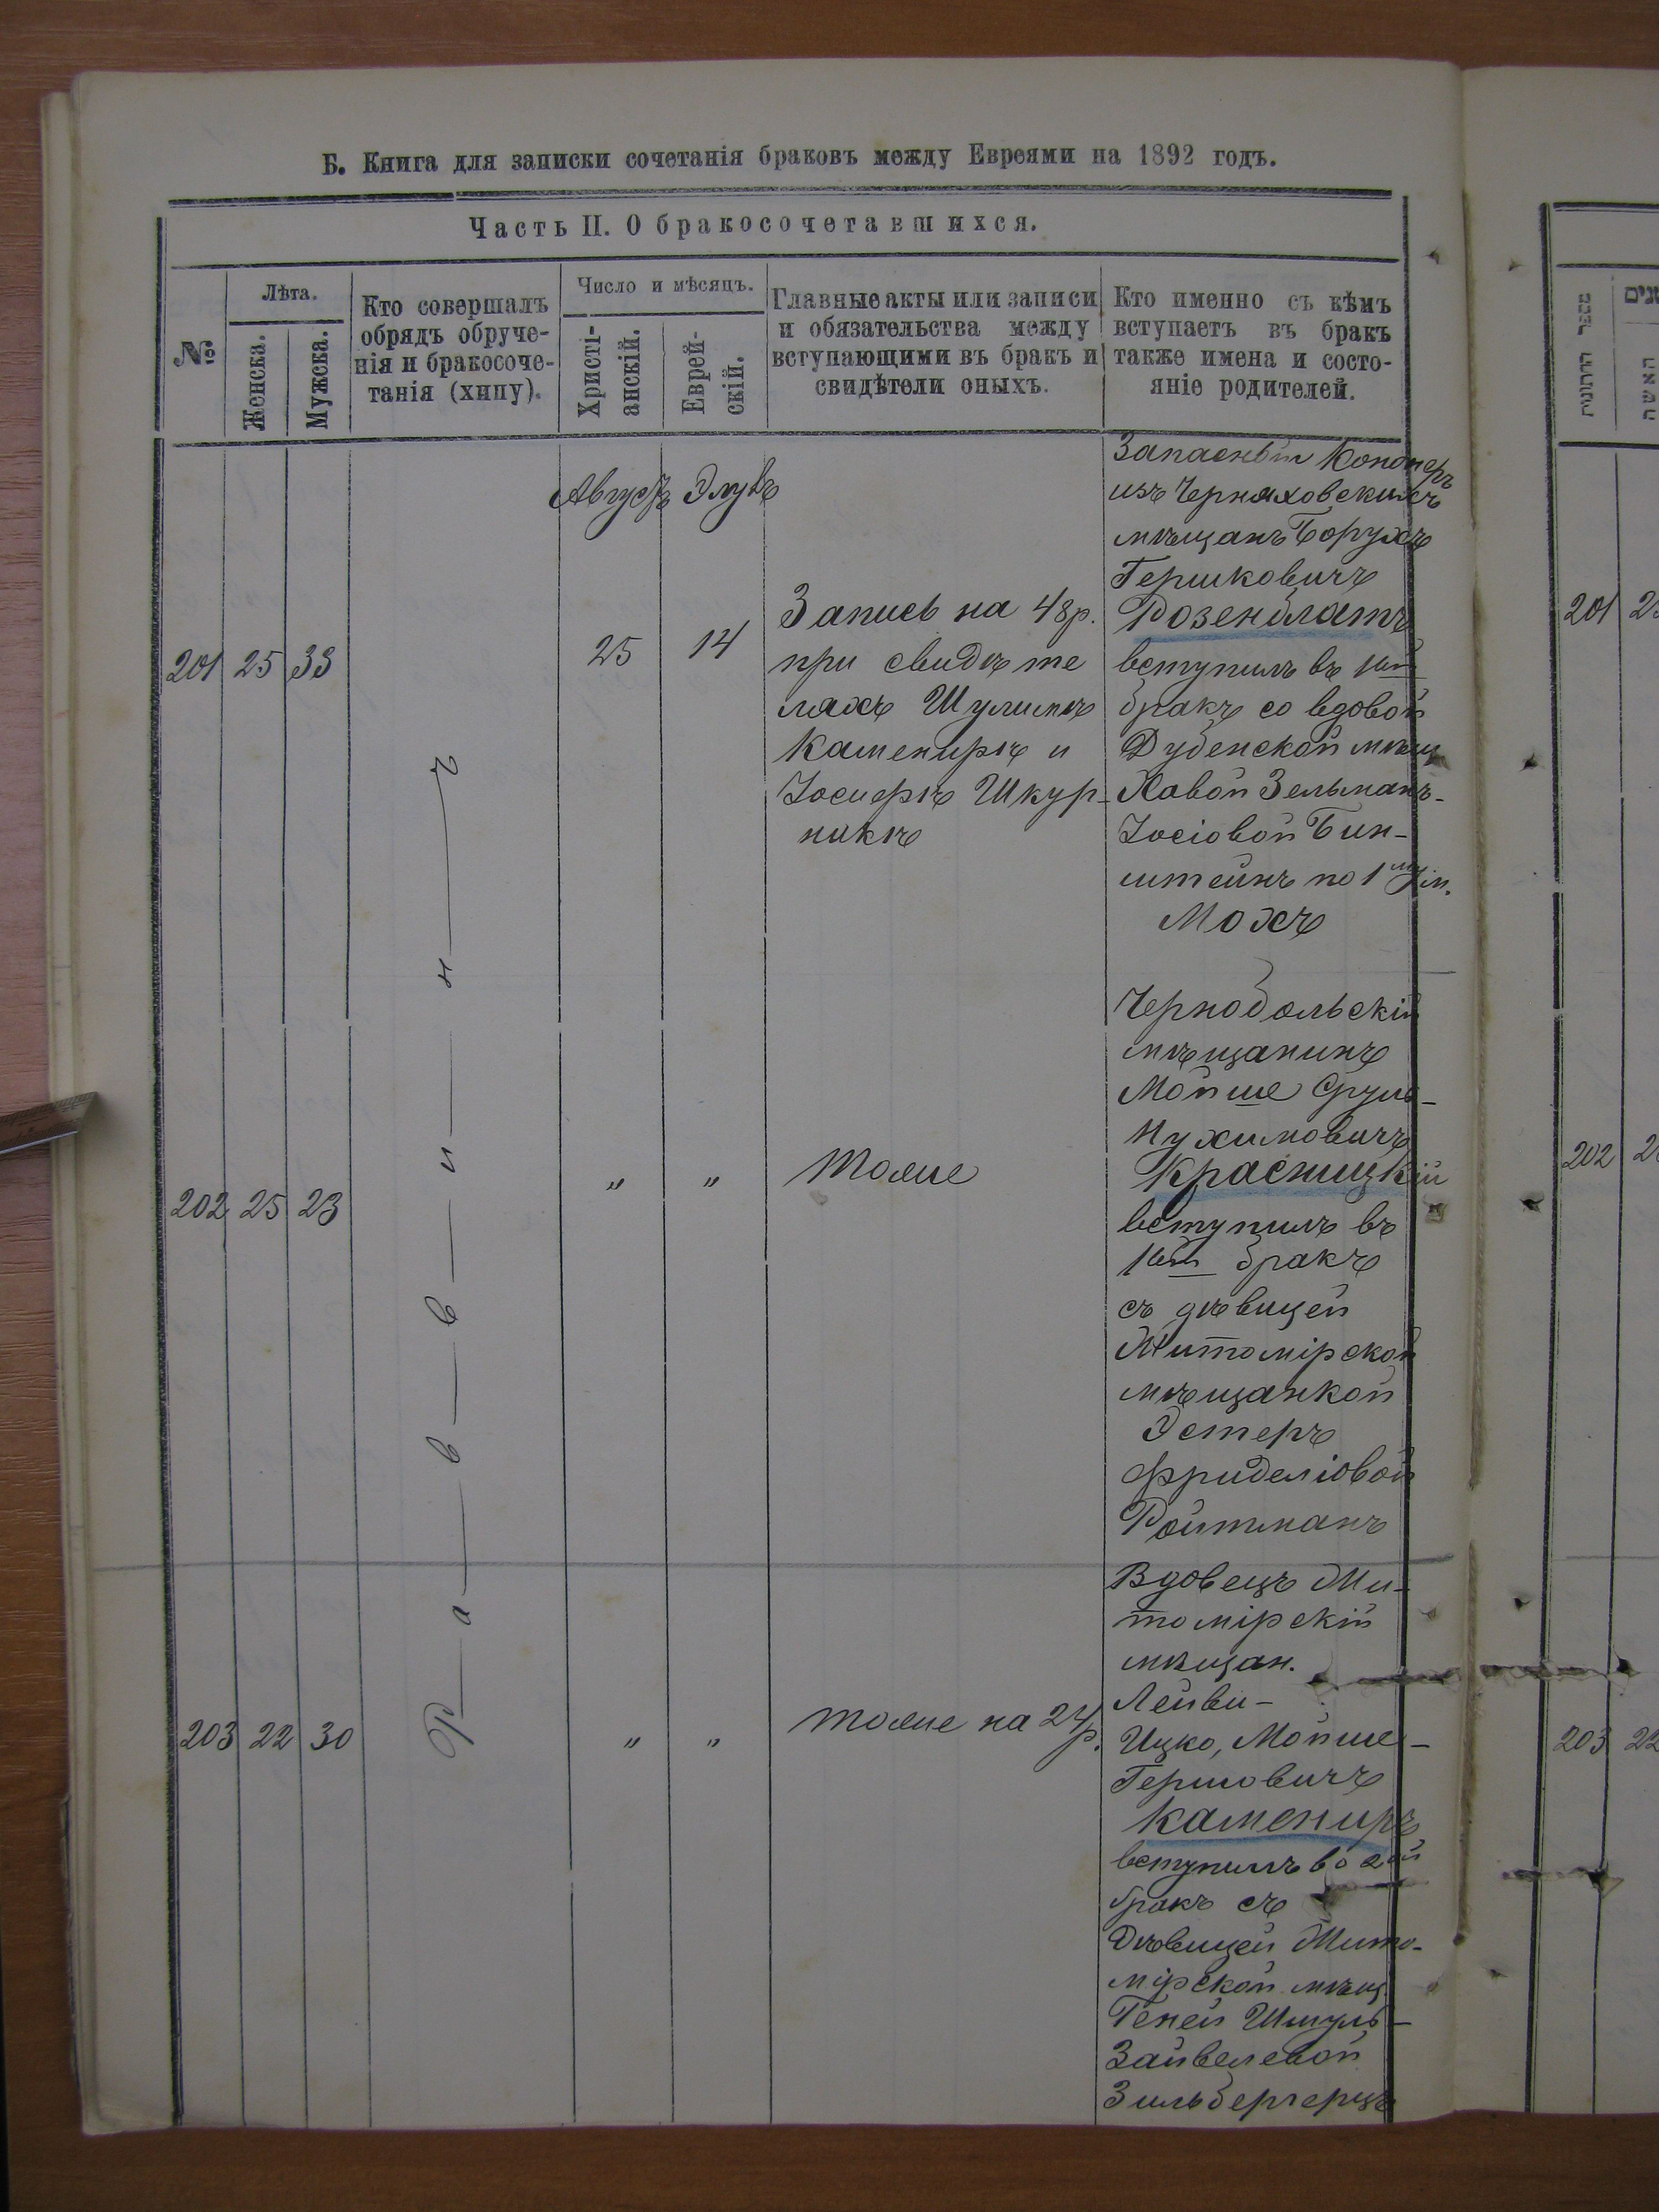 Б. Книга для записки сочетанія браковъ между Евреями на 1892 годъ.
Часть II. О бракосочетавшихся.
№
Лѣта.
Женска.
Мужска.
Кто совершалъ
обрядъ обруче-
нія и бракосоче-
танія (хипу).
Число и мѣсяцъ.
Христі-
анскій.
Еврей-
скій.
Главные акты или записи
и обязательства между
вступающими въ бракъ и
свидѣтели оныхъ.
Кто именно съ кѣмъ
вступаетъ въ бракъ
также имена и состо-
яніе родителей.
Раввинъ
Августъ Элулъ
201 25 33
25 14
Запись на 48 р.
при свидѣте
ляхъ Шулимъ
Каменирѣ и
Іосифѣ Шкур-
никѣ
Запасный
изъ Черняховскихъ
мѣщанъ Борухъ
Гершковичъ
Розенблатъ
вступилъ въ 1ый
бракъ со вдовой
Дубенской мѣщ
Хавой Зельманъ-
Іосіовой Бин-
штейнъ по 1му м.
Мохъ
202 25 23
" "
тоже
Чернобольскій
мѣщанинъ
Мойше Сруль-
Нухимовичъ
Красницкій
вступилъ въ
1ый бракъ
съ дѣвицей
Житомірской
мѣщанкой
Эстеръ
Фриделіовой
Ройтманъ
203 22 30
" "
тоже на 24 р.
Вдовецъ Жи-
томірскій
мѣщан.
Лейви-
Ицко, Мойше-
Гершовичъ
Камениръ
вступилъ во 2ой
бракъ съ
Дѣвицей Жито-
мірской мѣщ.
Геней Шмуль-
Зайвелевой
Зильбергерцъ
201
202
203 22